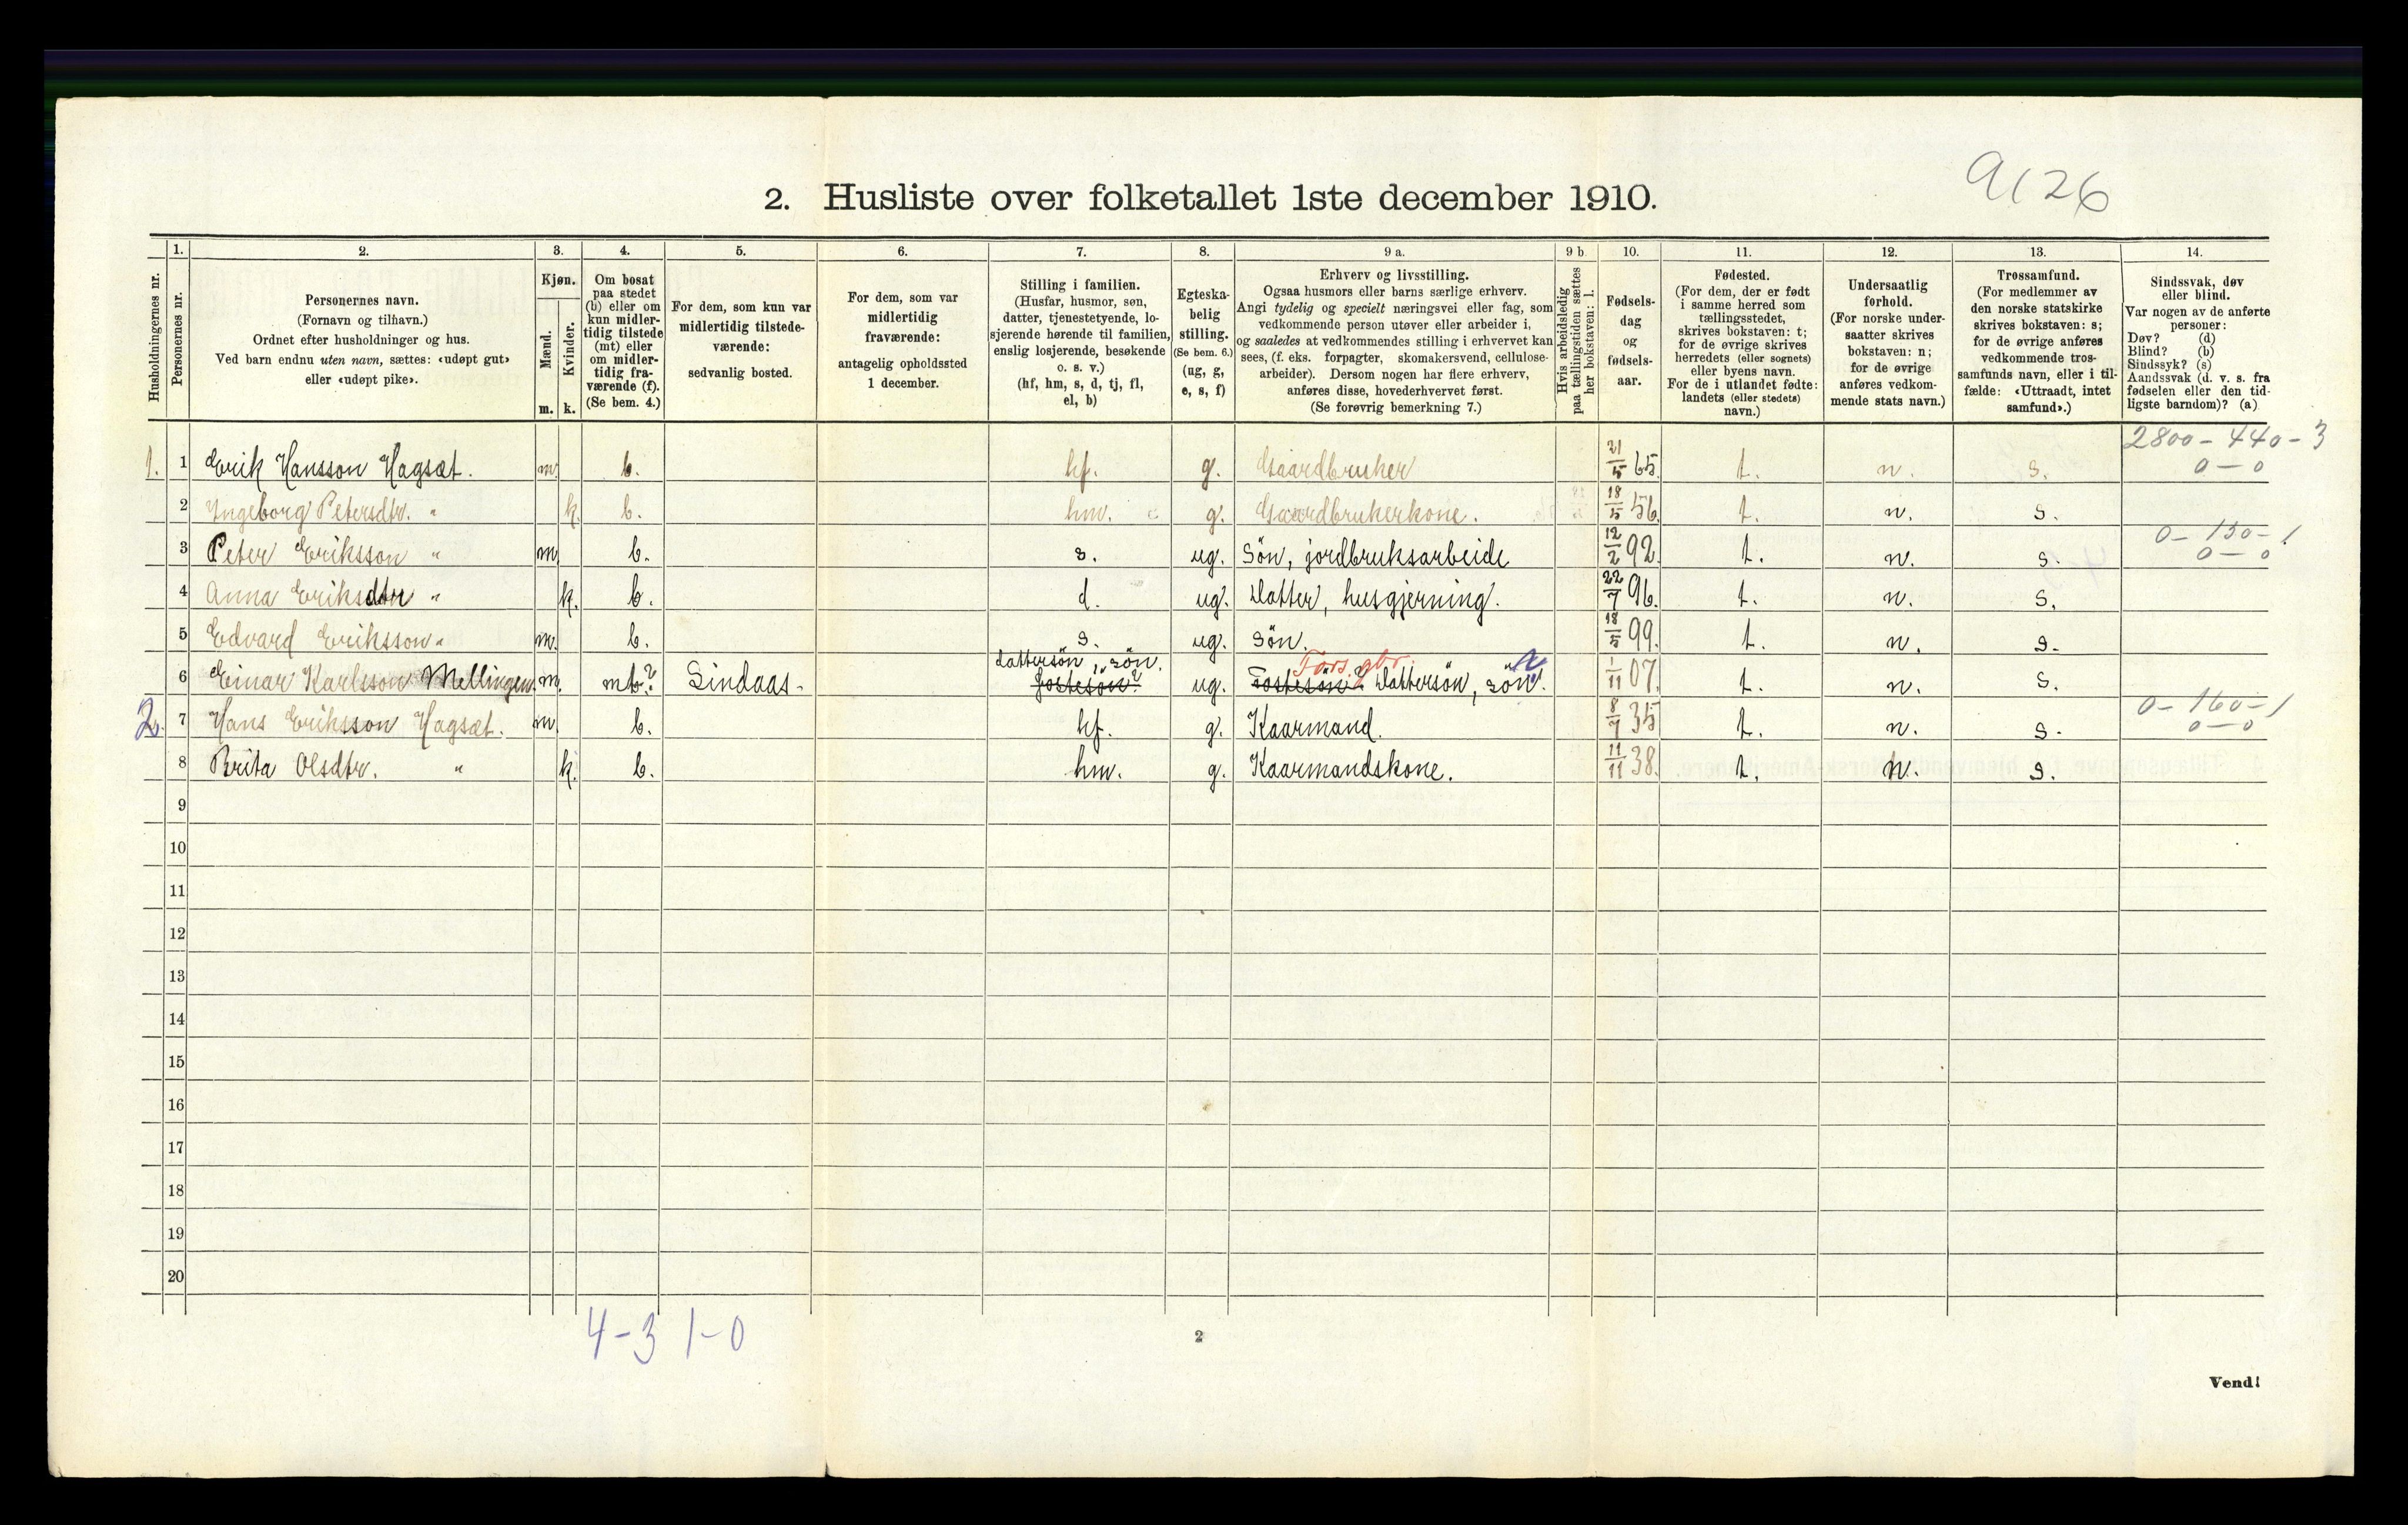 9126
2. Husliste over folketallet 1ste december 1910.
Husholdningernes nr.
1.
Personernes nr.
2.
Personernes navn.
(Fornavn og tilnavn.)
Ordnet efter husholdninger og hus.
Ved barn endnu uten navn, sættes: «udøpt gut»
eller «udøpt pike».
3.
Kjøn.
Mænd.
Kvinder.
m. k.
4.
Om bosat
paa stedet
(b) eller om
kun midler-
tidig tilstede
(mt) eller
om midler-
tidig fra-
værende (f).
(Se bem. 4.)
5.
For dem, som kun var
midlertidig tilstede-
værende:
sedvanlig bosted.
6.
For dem, som var
midlertidig
fraværende:
antagelig opholdssted
1 december.
7.
Stilling i familien.
(Husfar, husmor, søn,
datter, tjenestetyende, lo-
sjerende hørende til familien,
enslig losjerende, besøkende
o. s. v.)
(hf, hm, s, d, tj, fl,
el, b)
8.
Egteska-
belig
stilling.
(Se bem. 6.)
(ug, g,
e, s, f)
9 a.
Erhverv og livsstilling.
Ogsaa husmors eller barns særlige erhverv.
Angi tydelig og specielt næringsvei eller fag, som
vedkommende person utøver eller arbeider i,
og saaledes at vedkommendes stilling i erhvervet kan
sees, (f. eks. forpagter, skomakersvend, cellulose-
arbeider). Dersom nogen har flere erhverv,
anføres disse, hovederhvervet først.
(Se forøvrig bemerkning 7.)
9 b
Hvis arbeidsledig
paa tællingstiden sættes
her bokstaven: l.
10.
Fødsels-
dag
og
fødsels-
aar.
11.
Fødested.
(For dem, der er født
i samme herred som
tællingsstedet,
skrives bokstaven: t;
for de øvrige skrives
herredets (eller sognets)
eller byens navn.
For de i utlandet fødte:
landets (eller stedets)
navn.)
12.
Undersaatlig
forhold.
(For norske under-
saatter skrives
bokstaven: n;
for de øvrige
anføres vedkom-
mende stats navn.)
13.
Trossamfund.
(For medlemmer av
den norske statskirke
skrives bokstaven: s;
for de øvrige anføres
vedkommende tros-
samfunds navn, eller i til-
fælde: «Uttraadt, intet
samfund».)
14.
Sindssvak, døv
eller blind.
Var nogen av de anførte
personer:
Døv? (d)
Blind? (b)
Sindssyk? (s)
Aandssvak (d. v. s. fra
fødselen eller den tid-
ligste barndom)? (a)
2800 - 440 - 3
1. 1 Erik Hansson Hagsæt. m. b. hf. g. Gaardbruker 21/5 65. t. n. s. 0 - 0
2 Ingeborg Petersdtr. " k. b. hm. g. Gaardbrukerkone. 18/5 56. t. n. s.
0 - 150 - 1
3 Peter Eriksson " m. b. s. ug. Sön, jordbruksarbeide 12/2 92. t. n. s. 0 - 0
4 Anna Eriksdtr " k. b. d. ug. Datter, husgjerning. 22/7 96. t. n. s.
5 Edvard Eriksson " m. b. s. ug. Sön. 18/5 99. t. n. s.
dattersön, sön. Fors. gbr.
6 Einar Karlsson Mellingen. m. mt? Lindaas - fostesön? ug. Fostesön? Dattersön, sön. 1/11 07. t. n. s.
0 - 160 - 1
2. 7 Hans Eriksson Hagsæt. m. b. hf. g. Kaarmand. 8/7 35 t. n. s. 0 - 0
8 Brita Olsdtr. " k. b. hm. g. Kaarmandskone. 11/11 38. t. n. s.
9
10
11
12
13
14
15
16
17
18
19
20
4 - 3 1 - 0
2
Vend!